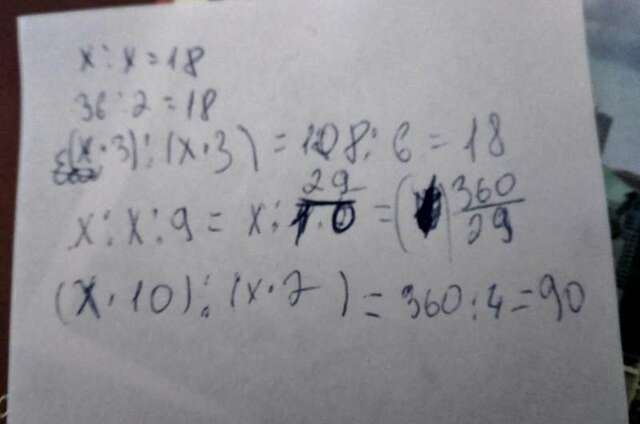 x : x = 18
36 : 2 = 18
(x · 3) : (x · 3) = 108 : 6 = 18
x : x : 9 = x : 29/10 = ( ) 360/29
(x · 10) : (x · 2) = 360 : 4 = 90